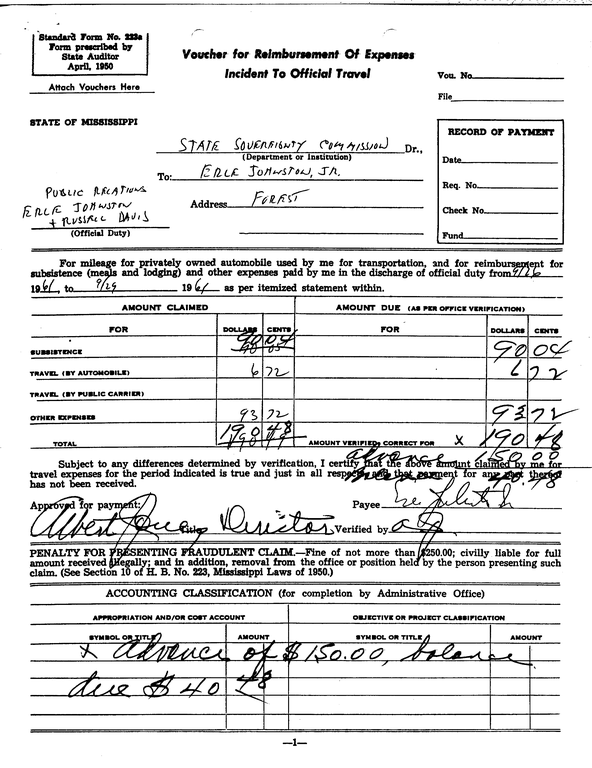 Standard Form No. 223a
Form prescribed by
State Auditor
April, 1950
Attach Vouchers Here
Voucher for Reimbursement Of Expenses
Incident To Official Travel
Vou. No.
File
STATE OF MISSISSIPPI
STATE SOVEREIGNTY COMMISSION Dr.,
(Department or Institution)
To: ERLE JOHNSTON, JR.
Address FOREST
PUBLIC RELATIONS
ERLE JOHNSTON
+ RUSSELL DAVIS
(Official Duty)
RECORD OF PAYMENT
Date
Req. No.
Check No.
Fund
For mileage for privately owned automobile used by me for transportation, and for reimbursement for
subsistence (meals and lodging) and other expenses paid by me in the discharge of official duty from 9/26
1961, to 9/29 1961 as per itemized statement within.
AMOUNT CLAIMED AMOUNT DUE (AS PER OFFICE VERIFICATION)
FOR DOLLARS CENTS FOR DOLLARS CENTS
SUBSISTENCE 90 04 90 04
TRAVEL (BY AUTOMOBILE) 6 72 6 72
TRAVEL (BY PUBLIC CARRIER)
OTHER EXPENSES 93 72 93 72
TOTAL 190 48 AMOUNT VERIFIED; CORRECT FOR X 190 48
advance 150.00
Subject to any differences determined by verification, I certify that the above amount claimed by me for
travel expenses for the period indicated is true and just in all respects and that payment for any part thereof
has not been received.
Approved for payment: Payee
Albert Jones Title Director Verified by
PENALTY FOR PRESENTING FRAUDULENT CLAIM.—Fine of not more than $250.00; civilly liable for full
amount received illegally; and in addition, removal from the office or position held by the person presenting such
claim. (See Section 10 of H. B. No. 223, Mississippi Laws of 1950.)
ACCOUNTING CLASSIFICATION (for completion by Administrative Office)
APPROPRIATION AND/OR COST ACCOUNT OBJECTIVE OR PROJECT CLASSIFICATION
SYMBOL OR TITLE AMOUNT SYMBOL OR TITLE AMOUNT
X Advance of $150.00, balance
due $40 48
—1—